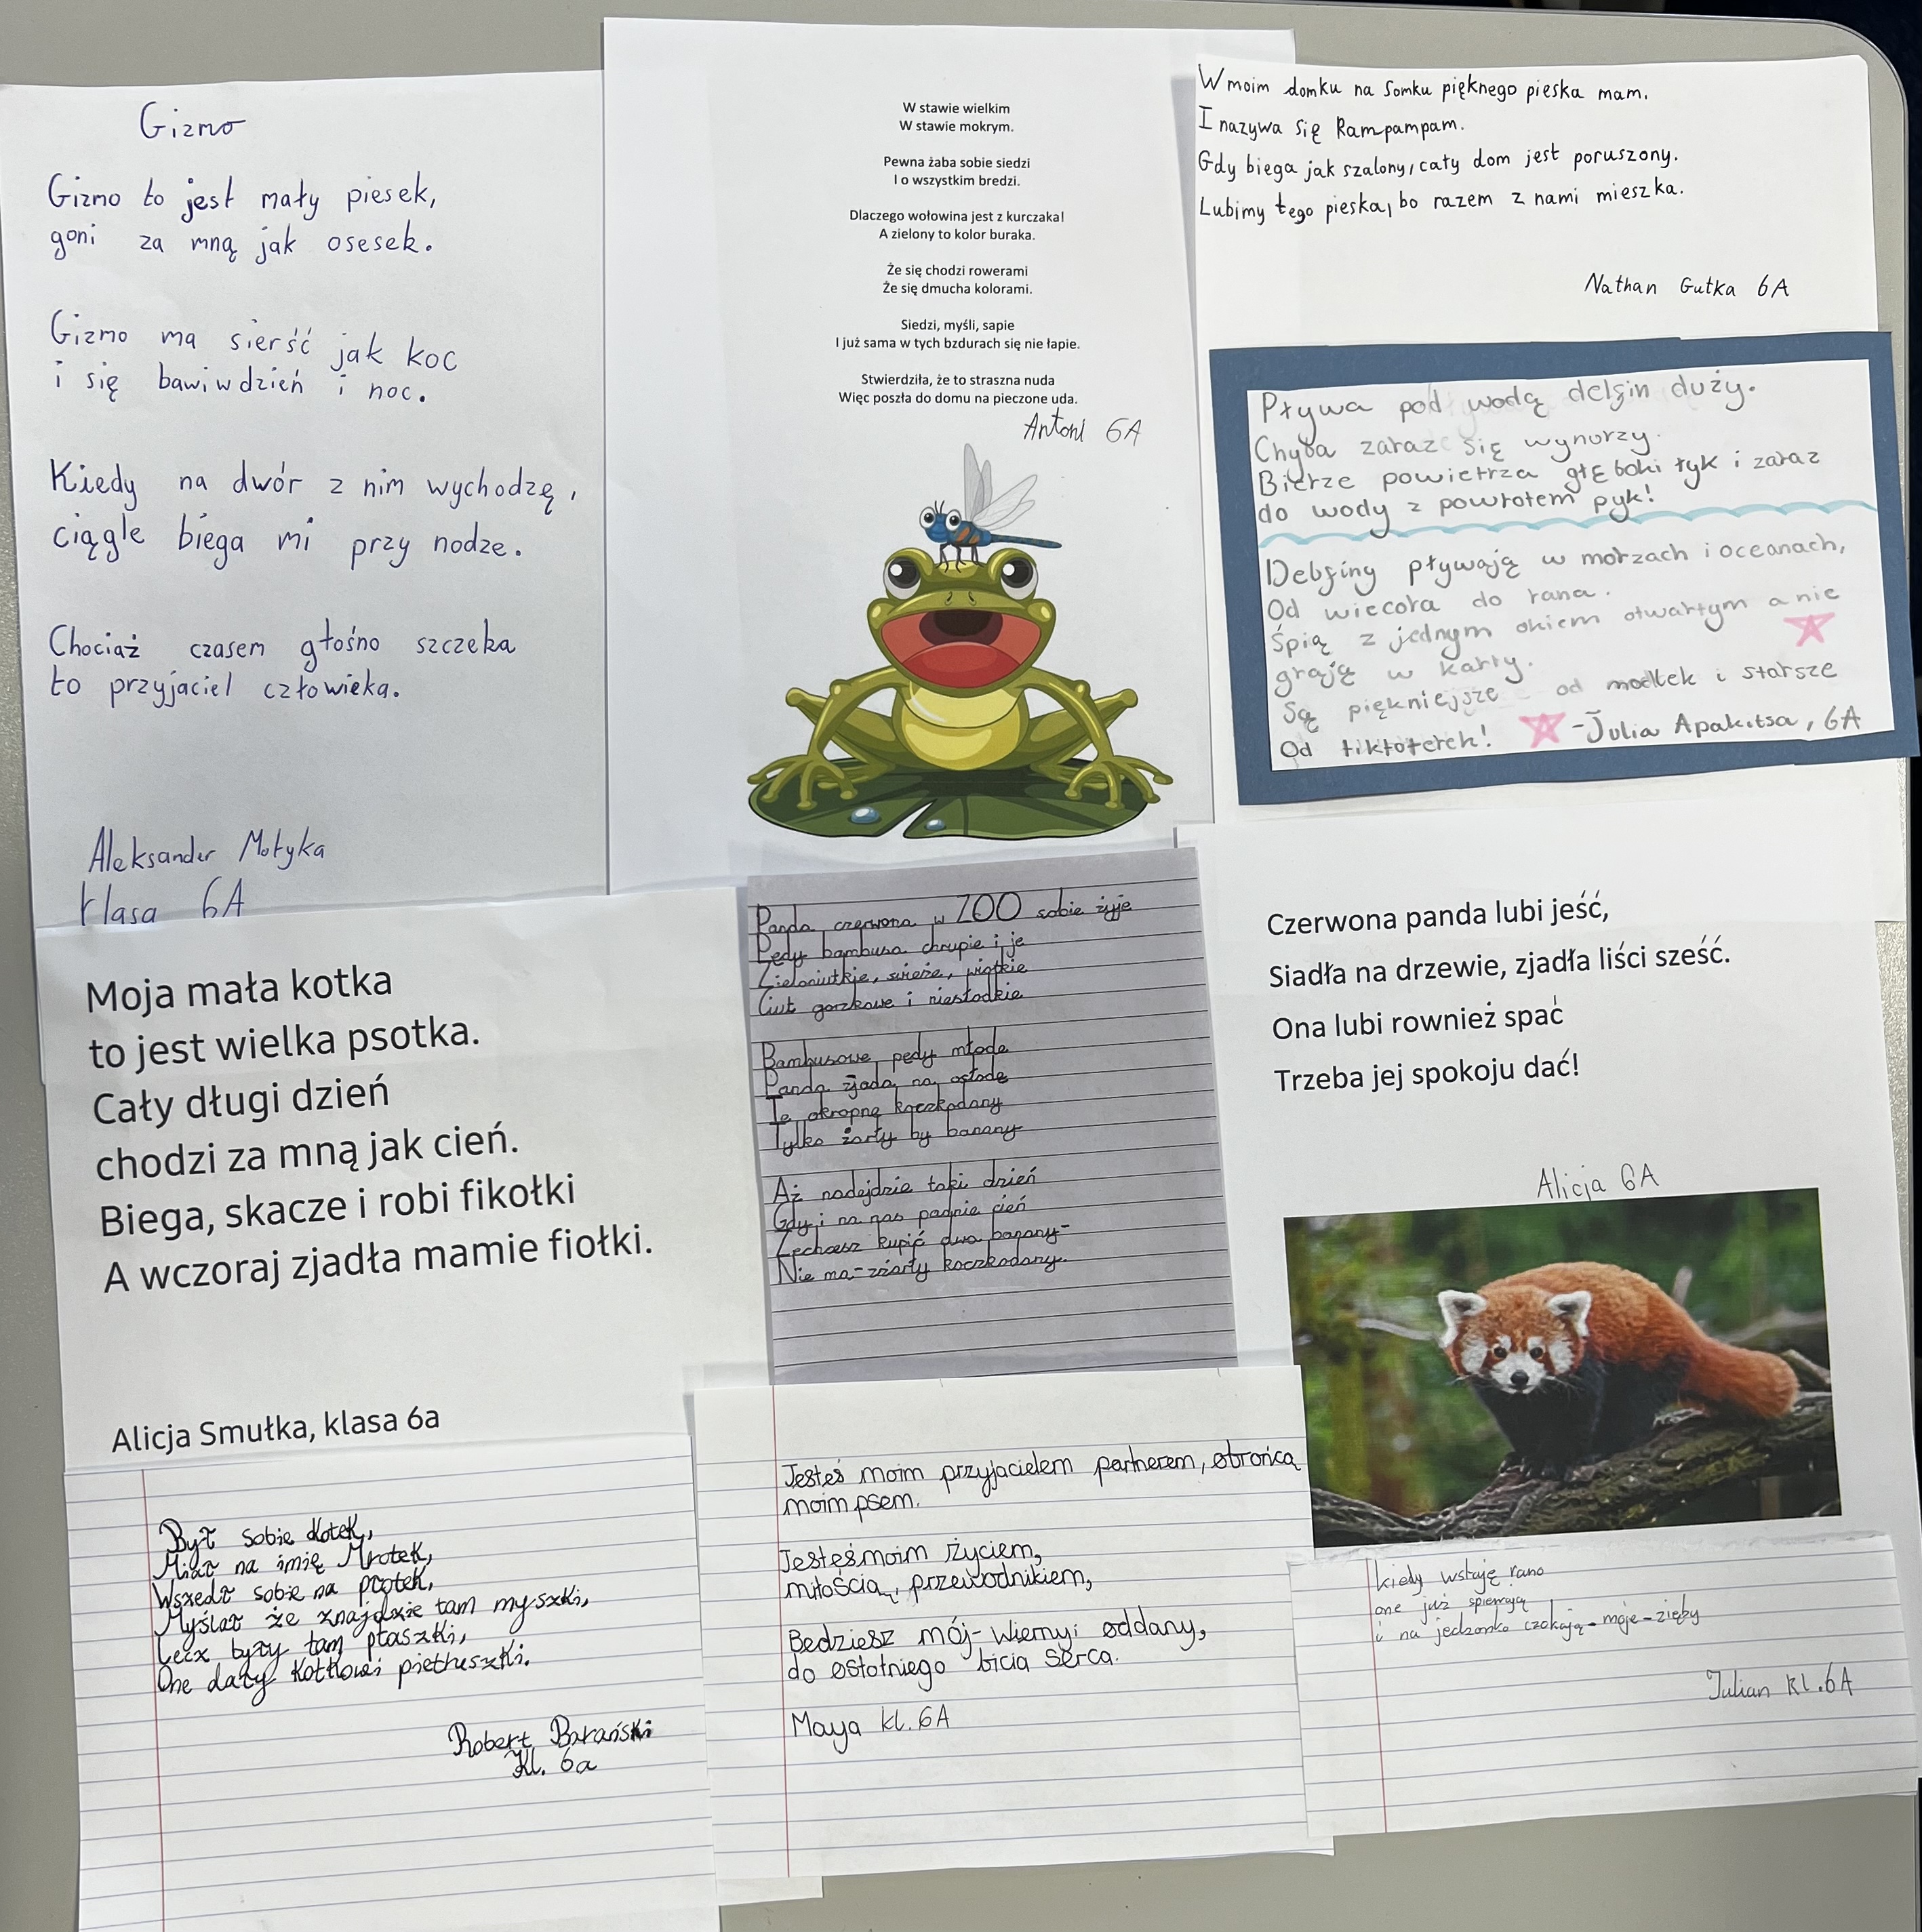 Gizmo
Gizmo to jest mały piesek,
goni za mną jak osesek.
Gizmo ma sierść jak koc
i się bawi w dzień i noc.
Kiedy na dwór z nim wychodzę,
ciągle biega mi przy nodze.
Chociaż czasem głośno szczeka
to przyjaciel człowieka.
Aleksander Motyka
klasa 6A
W stawie wielkim
W stawie mokrym.
Pewna żaba sobie siedzi
I o wszystkim bredzi.
Dlaczego wołowina jest z kurczaka!
A zielony to kolor buraka.
Że się chodzi rowerami
Że się dmucha kolorami.
Siedzi, myśli, sapie
I już sama w tych bzdurach się nie łapie.
Stwierdziła, że to straszna nuda
Więc poszła do domu na pieczone uda.
Antoni 6A
W moim domku na Somku pięknego pieska mam.
I nazywa się Rampampam.
Gdy biega jak szalony, cały dom jest poruszony.
Lubimy tego pieska, bo razem z nami mieszka.
Nathan Gutka 6A
Pływa pod wodą delfin duży.
Chyba zaraz się wynurzy.
Bierze powietrza głęboki łyk i zaraz
do wody z powrotem pyk!
Delfiny pływają w morzach i oceanach,
Od wiecora do rana.
Śpią z jednym okiem otwartym a nie
grają w karty.
Są piękniejsze od modlek i starsze
Od tiktoterek!
-Julia Apakitsa, 6A
Moja mała kotka
to jest wielka psotka.
Cały długi dzień
chodzi za mną jak cień.
Biega, skacze i robi fikołki
A wczoraj zjadła mamie fiołki.
Alicja Smułka, klasa 6a
Panda czerwona w ZOO sobie żyje
Pędy bambusa chrupie i je
Zieloniutkie, świeże, wiotkie
Ciut gorzkawe i niesłodkie
Bambusowe pędy młode
Panda zjada na osłodę
Te okropne koczkodany
Tylko żarły by banany
Aż nadejdzie taki dzień
Gdy i na nas padnie cień
Zechcesz kupić dwa banany-
Nie ma-zżarły koczkodany.
Czerwona panda lubi jeść,
Siadła na drzewie, zjadła liści sześć.
Ona lubi rownież spać
Trzeba jej spokoju dać!
Alicja 6A
Był sobie kotek,
Miał na imię Mrotek,
Wszedł sobie na płotek,
Myślał że znajdzie tam myszki,
Lecz były tam ptaszki,
One dały kotkowi pietruszki.
Robert Barański
Kl. 6a
Jesteś moim przyjacielem partnerem, obrońcą
moim psem.
Jesteś moim życiem,
miłością, przewodnikiem,
Będziesz mój-wierny i oddany,
do ostatniego bicia serca.
Maya kl. 6A
kiedy wstaję rano
one już śpiewają
i na jedzonko czekają-moje-zięby
Julian kl. 6A